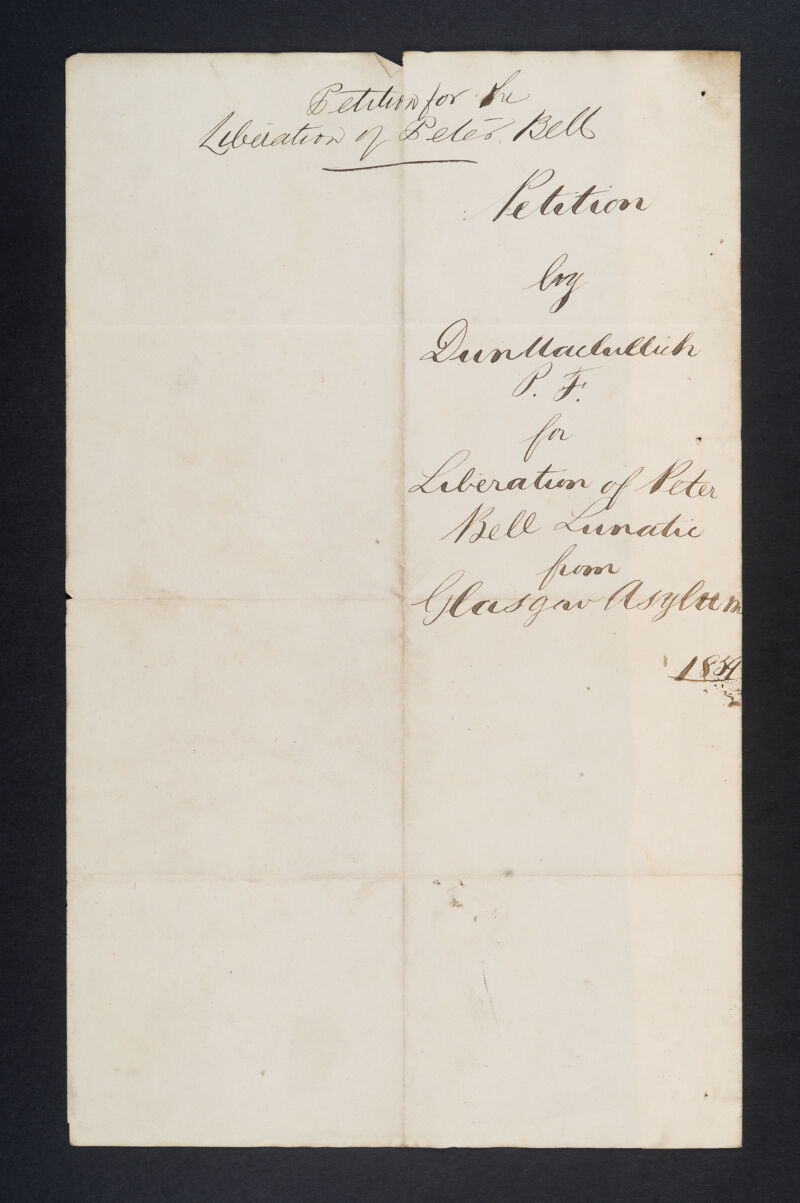 Petition for the
Liberation of Peter Bell
Petition
by
Dun MacLullich
P. F.
for
Liberation of Peter
Bell Lunatic
from
Glasgow Asylum
1859